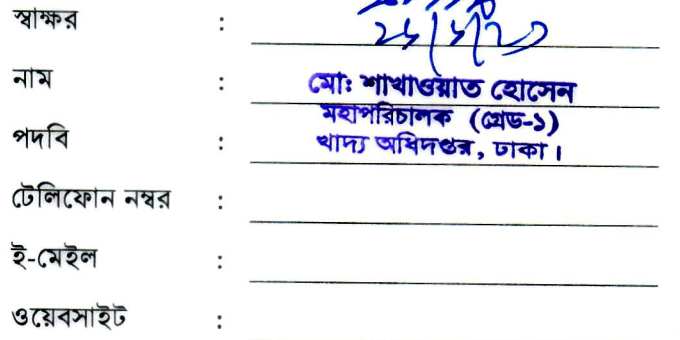 স্বাক্ষর :
নাম : মোঃ শাখাওয়াত হোসেন
মহাপরিচালক (গ্রেড-১)
পদবি : খাদ্য অধিদপ্তর, ঢাকা।
টেলিফোন নম্বর :
ই-মেইল :
ওয়েবসাইট :